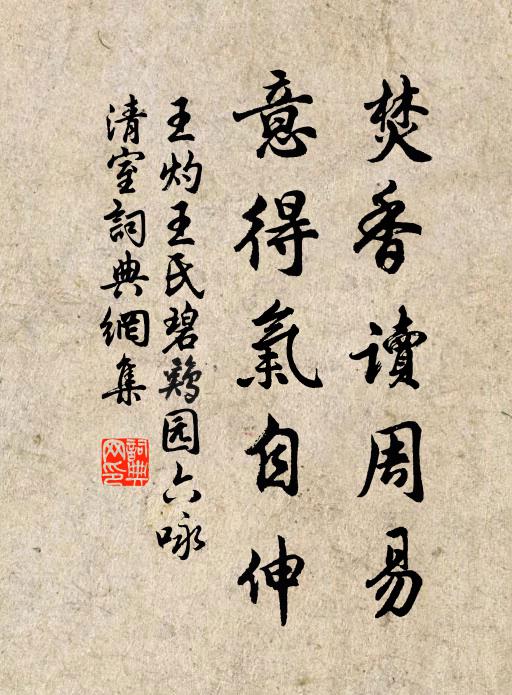 焚香讀周易
意得氣自伸
王灼王氏碧鷄园六咏
清室詞典網集
詞典网印